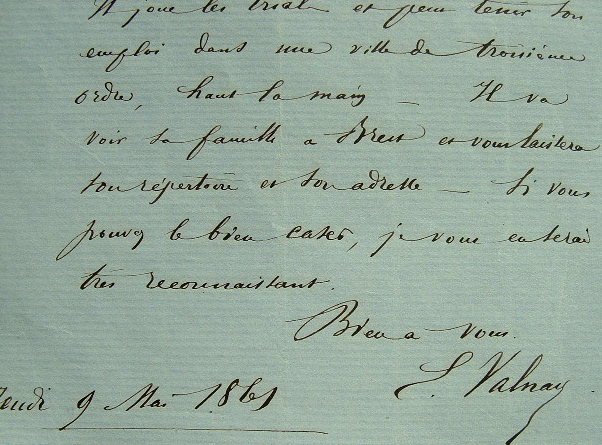 Il joue les trial et peut tenir son
emploi dans une ville de troisième
ordre, haut la main — Il va
voir sa famille a Brest et vous laissera
son répertoire et son adresse — Si vous
pouvez le bien caser, je vous en serai
très reconnaissant.
Bien a vous.
S. Valnay
Jeudi 9 Mai 1861